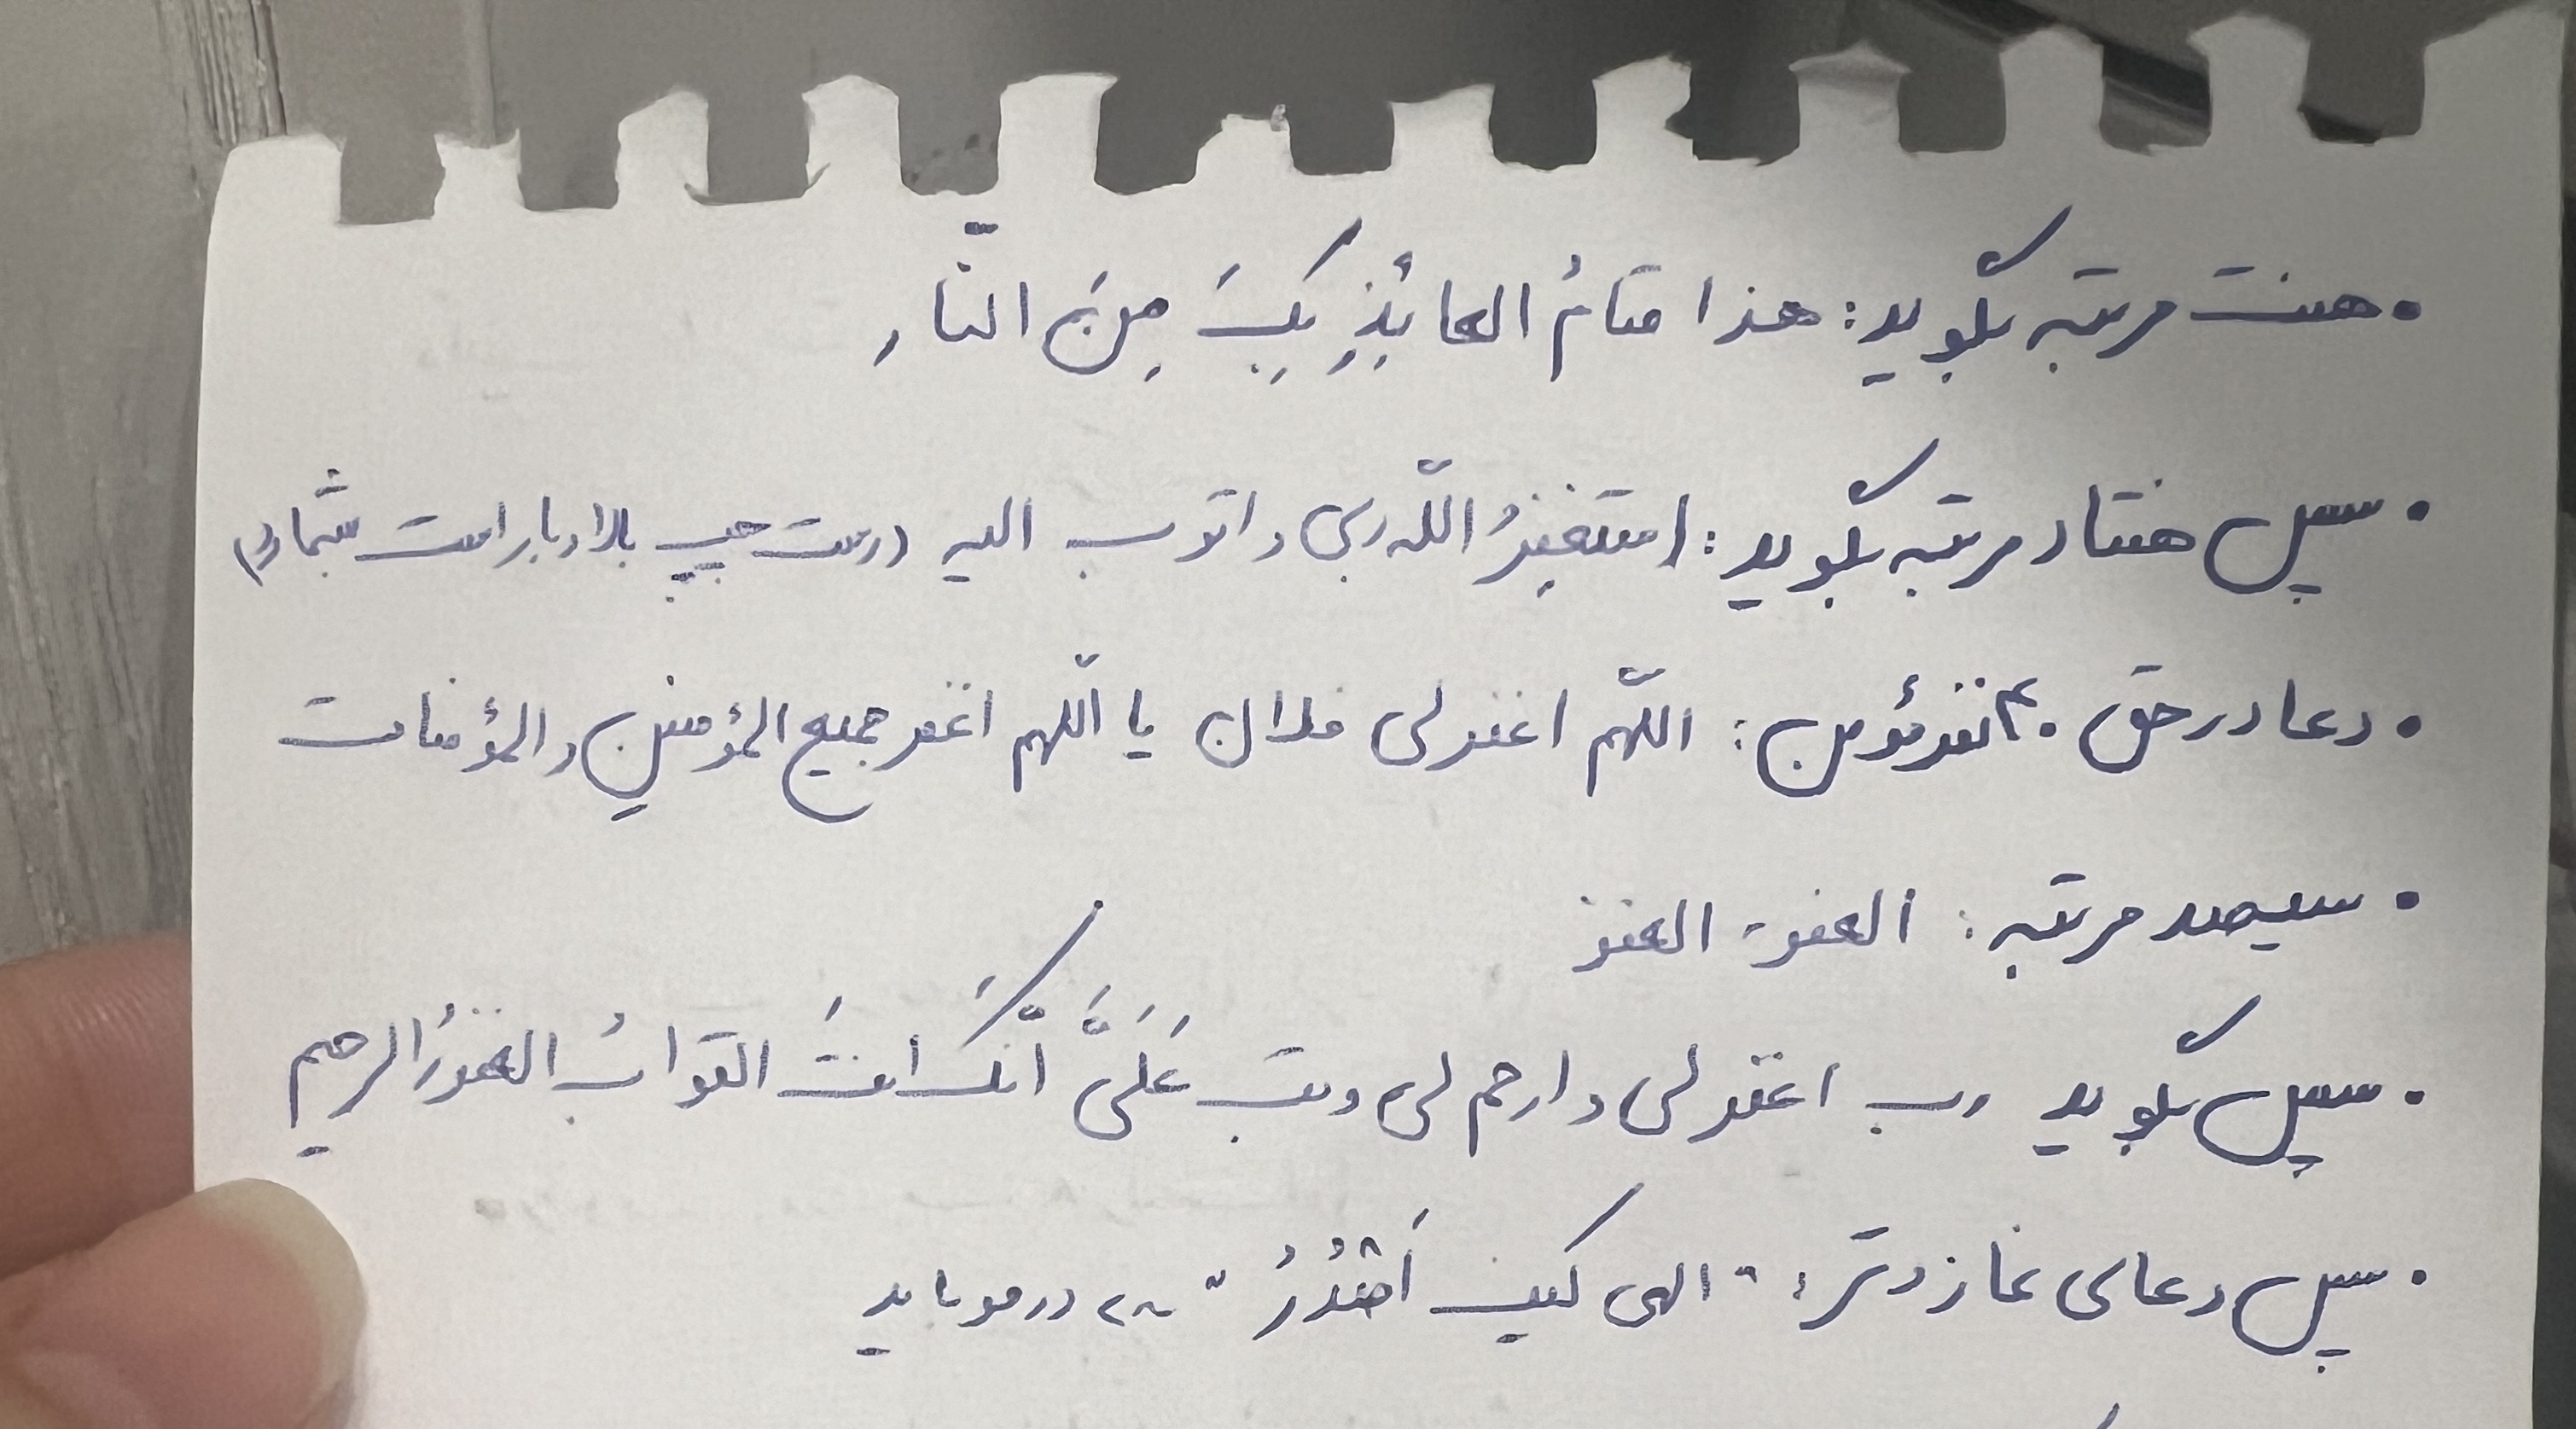 • هفت مرتبه بگویید: هذا مقامُ العائِذِ بِکَ مِنَ النّار
• سپس هفتاد مرتبه بگویید: استغفِرُ اللّه ربی و اتوب الیه (دست چپ بالا و با راست شمارد)
• دعا در حق ۴۰ نفر مؤمن: اللّهم اغفرلی فلان یا اللّهم اغفر جمیع المؤمنین و المؤمنات
• سیصد مرتبه: العفو - العفو
• سپس بگویید رب اغفرلی و ارحم لی و تب عَلَیَّ انّکَ انتَ التوابُ الغفورُ الرحیم
• سپس دعای نماز وتر: " الهی کیف